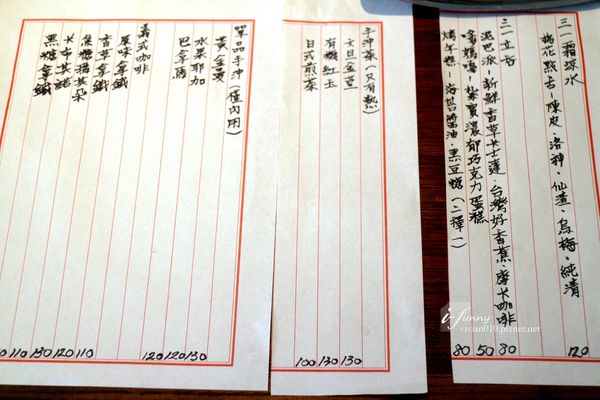 涼水
梅花點舌-陳皮、洛神、仙渣、烏梅、純清 120
三一立方
泥巴派-新鮮香草卡士達、台灣好香蕉、摩卡咖啡 80
紮實濃郁巧克力蛋糕 50
烤年糕-海苔醬油、黑豆糖(二擇一) 80
手沖茶(只有熱)
文旦金萱 130
有機紅玉 130
日式煎茶 100
單品手沖(僅內用)
黃金曼 130
水果耶加 120
巴拿馬 120
義式咖啡
原味拿鐵 110
香草拿鐵 120
焦糖瑪其朵 130
卡布其諾 110
黑糖拿鐵
i-funny
vivian010.pixnet.net